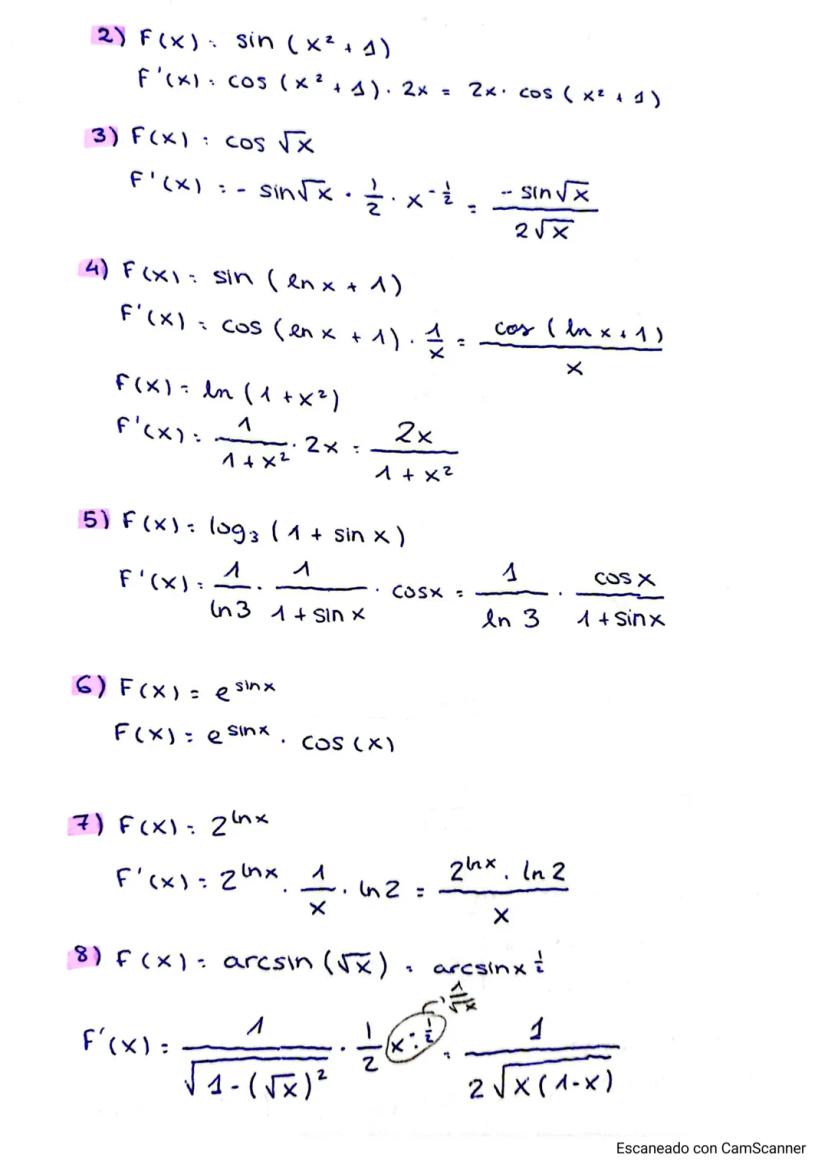 2) F(x) = sin (x² + 1)
F'(x) = cos (x² + 1) · 2x = 2x · cos (x² + 1)
3) F(x) = cos √x
F'(x) = - sin√x · 1/2 · x^-1/2 = -sin√x / 2√x
4) F(x) = sin (ln x + 1)
F'(x) = cos (ln x + 1) · 1/x = cos (ln x + 1) / x
F(x) = ln (1 + x²)
F'(x) = 1 / 1 + x² · 2x = 2x / 1 + x²
5) F(x) = log₃ (1 + sin x)
F'(x) = 1 / ln3 · 1 / 1 + sin x · cosx = 1 / ln 3 · cos x / 1 + sinx
6) F(x) = e^sinx
F(x) = e^sinx · cos (x)
7) F(x) = 2^lnx
F'(x) = 2^lnx · 1/x · ln2 = 2^lnx · ln 2 / x
8) F(x) = arcsin (√x) = arcsinx^1/2
1/√x
F'(x) = 1 / √1-(√x)² · 1/2 x^-1/2 = 1 / 2√x(1-x)
Escaneado con CamScanner